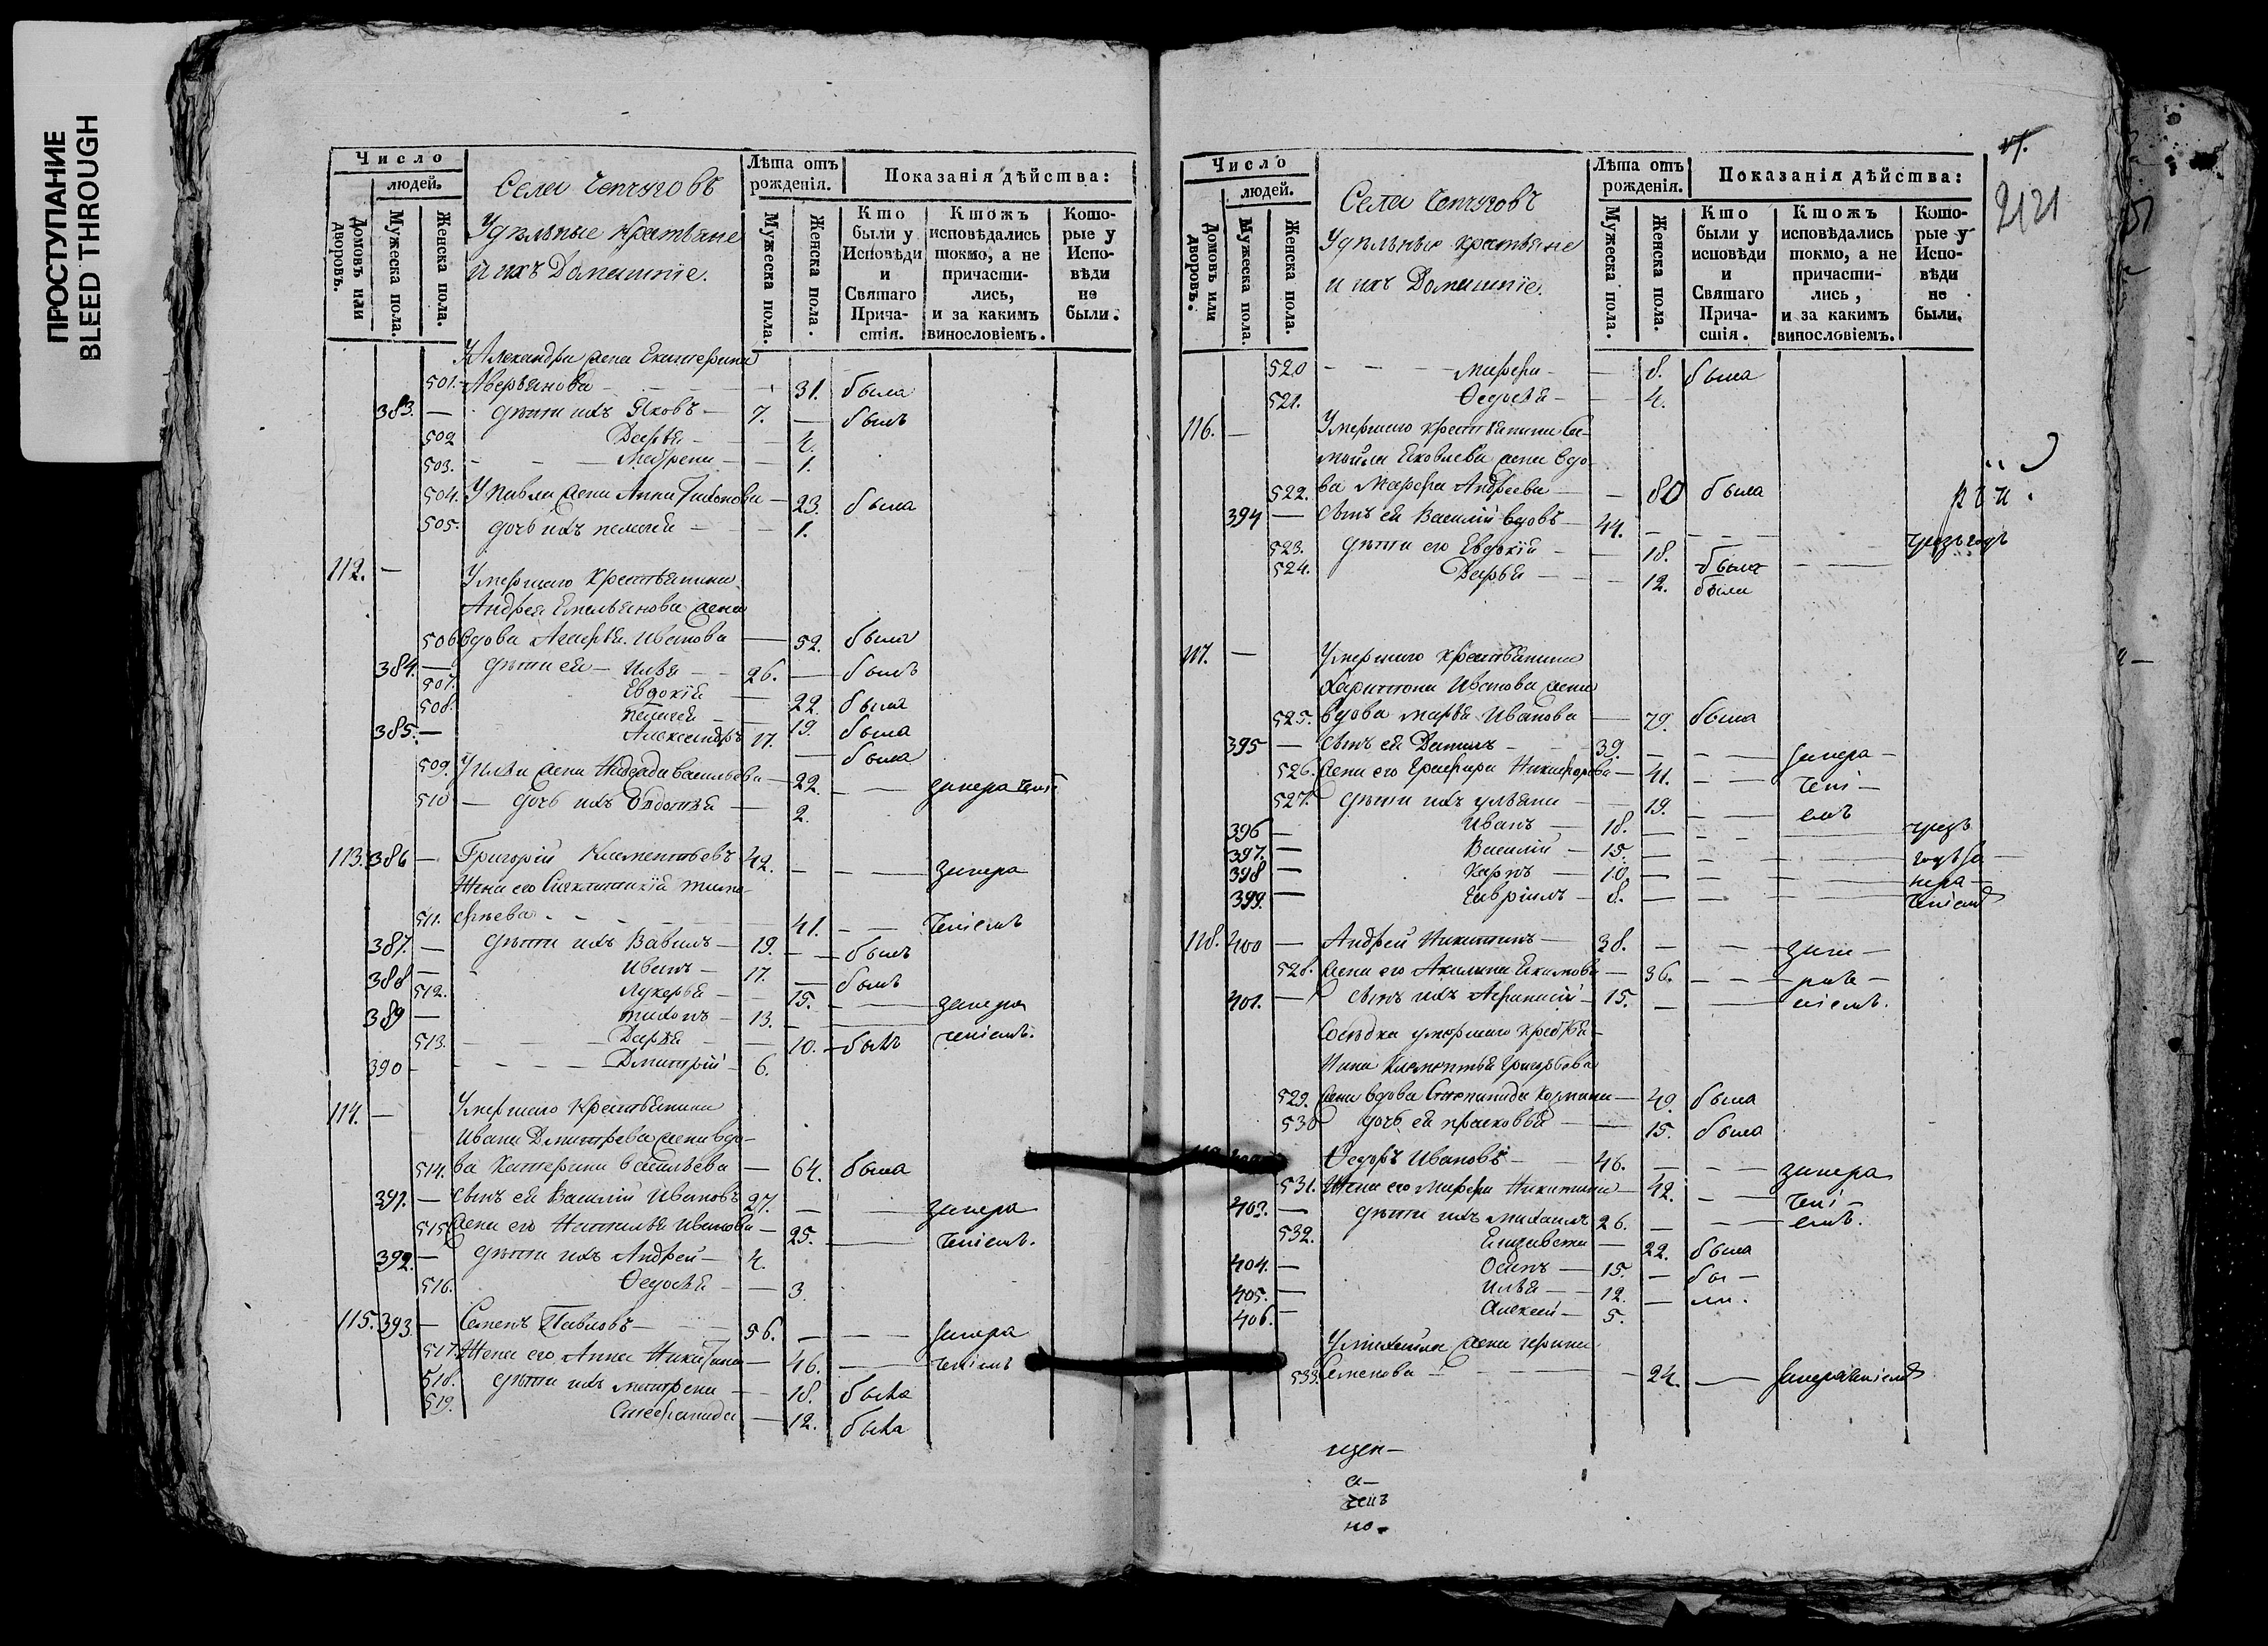 ПРОСТУПАНИЕ
BLEED THROUGH
Число
людей.
Домовъ или дворовъ.
Мужеска пола.
Женска пола.
Села Чепчуговъ
Удѣльные Крестьяне
и ихъ Домашніе.
Лѣта отъ рожденія.
Мужеска пола.
Женска пола.
Показанія дѣйства:
Кто были у Исповѣди и Святаго Причастія.
Ктожъ исповѣдались токмо, а не причастились, и за какимъ винословіемъ.
Которые у Исповѣди не были.
У Александра жена Екатерина
501. Аверьянова 31. была
383. дѣти ихъ Яковъ 7. былъ
502 Дарья 4.
503. Матрена 1.
504. У Павла жена Анна 23. была
505. дочь ихъ Пелагея 1.
112. Умершаго Крестьянина
Андрея Емельянова жена
506 вдова Агафья Иванова 52. была
384. дѣти ея Илья 26. былъ
507. Евдокія 22. была
508. Пелагея 19. была
385. Александръ 17. была
509. У Ильи жена Надежда Васильева 22. заператеніе
510 дочь ихъ Евдокія 2.
113. 386 Григорій Климентьевъ 42. запера
Жена его Тимо-
511. фѣева 41. теніемъ
387. дѣти ихъ Вавилъ 19. былъ
388 Иванъ 17. былъ
512. Лукерья 15. запера
389 Тихонъ 13.
513. Дарья 10. былъ теніемъ.
390 Дмитрій 6.
114. Умершаго Крестьянина
Ивана Дмитрева жена вдо-
514. ва Катерина Васильева 64. была
391. сынъ ея Василій Ивановъ 27. запера
515 жена его Наталья Иванова 25. теніемъ.
392. дѣти ихъ Андрей 4.
516. Ѳедосья 3.
115. 393. Семенъ Павловъ 56. запера
517. Жена его Анна Никитина 46. теніемъ
518. дѣти ихъ Матрена 18. была
519. Степанида 12. была
Число
людей.
Домовъ или дворовъ.
Мужеска пола.
Женска пола.
Села Чепчуговъ
Удѣльные крестьяне
и ихъ Домашніе.
Лѣта отъ рожденія.
Мужеска пола.
Женска пола.
Показанія дѣйства:
Кто были у исповѣди и Святаго Причастія.
Ктожъ исповѣдались токмо, а не причастились, и за какимъ винословіемъ.
Которые у Исповѣди не были.
520 Марфа 8. была
521. Ѳедосья 4.
116. Умершаго крестьянина Са-
мойла Яковлева жена вдо-
522. ва Марфа Андреева 80 была
394 сынъ ея Василій вдовъ 44.
523. дѣти его Евдокія 18. была
524. Дарья 12. была
117. Умершаго крестьянина
Харитона Иванова жена
525. вдова Марья Иванова 79. была
395 сынъ ея Данилъ 39. запера
526. жена его Никифорова 41. тені
527. дѣти ихъ Ульяна 19. емъ
396 Иванъ 18.
397. Василій 15.
398 Карпъ 10.
399. Гавріилъ 8. теніемъ
118. 400 Андрей Никитинъ 38.
528. жена его Акилина Екимова 36.
401. сынъ ихъ Афанасій 15.
Сосѣдка умершаго крестья-
нина Климентья Григорьева
529. жена вдова Степанида Козмина 49. была
530 дочь ея Прасковья 15. была
Ѳедоръ Ивановъ 46. запера
531. Жена его Марфа Никитина 42. тені
403. дѣти ихъ Михаилъ 26. емъ.
532. Елизавета 22. была
404. Осипъ 15. бы
405. Илья 12. ли.
406. Алексей 5.
У Михаила жена Ирина
533. Семенова 24. заператеніемъ